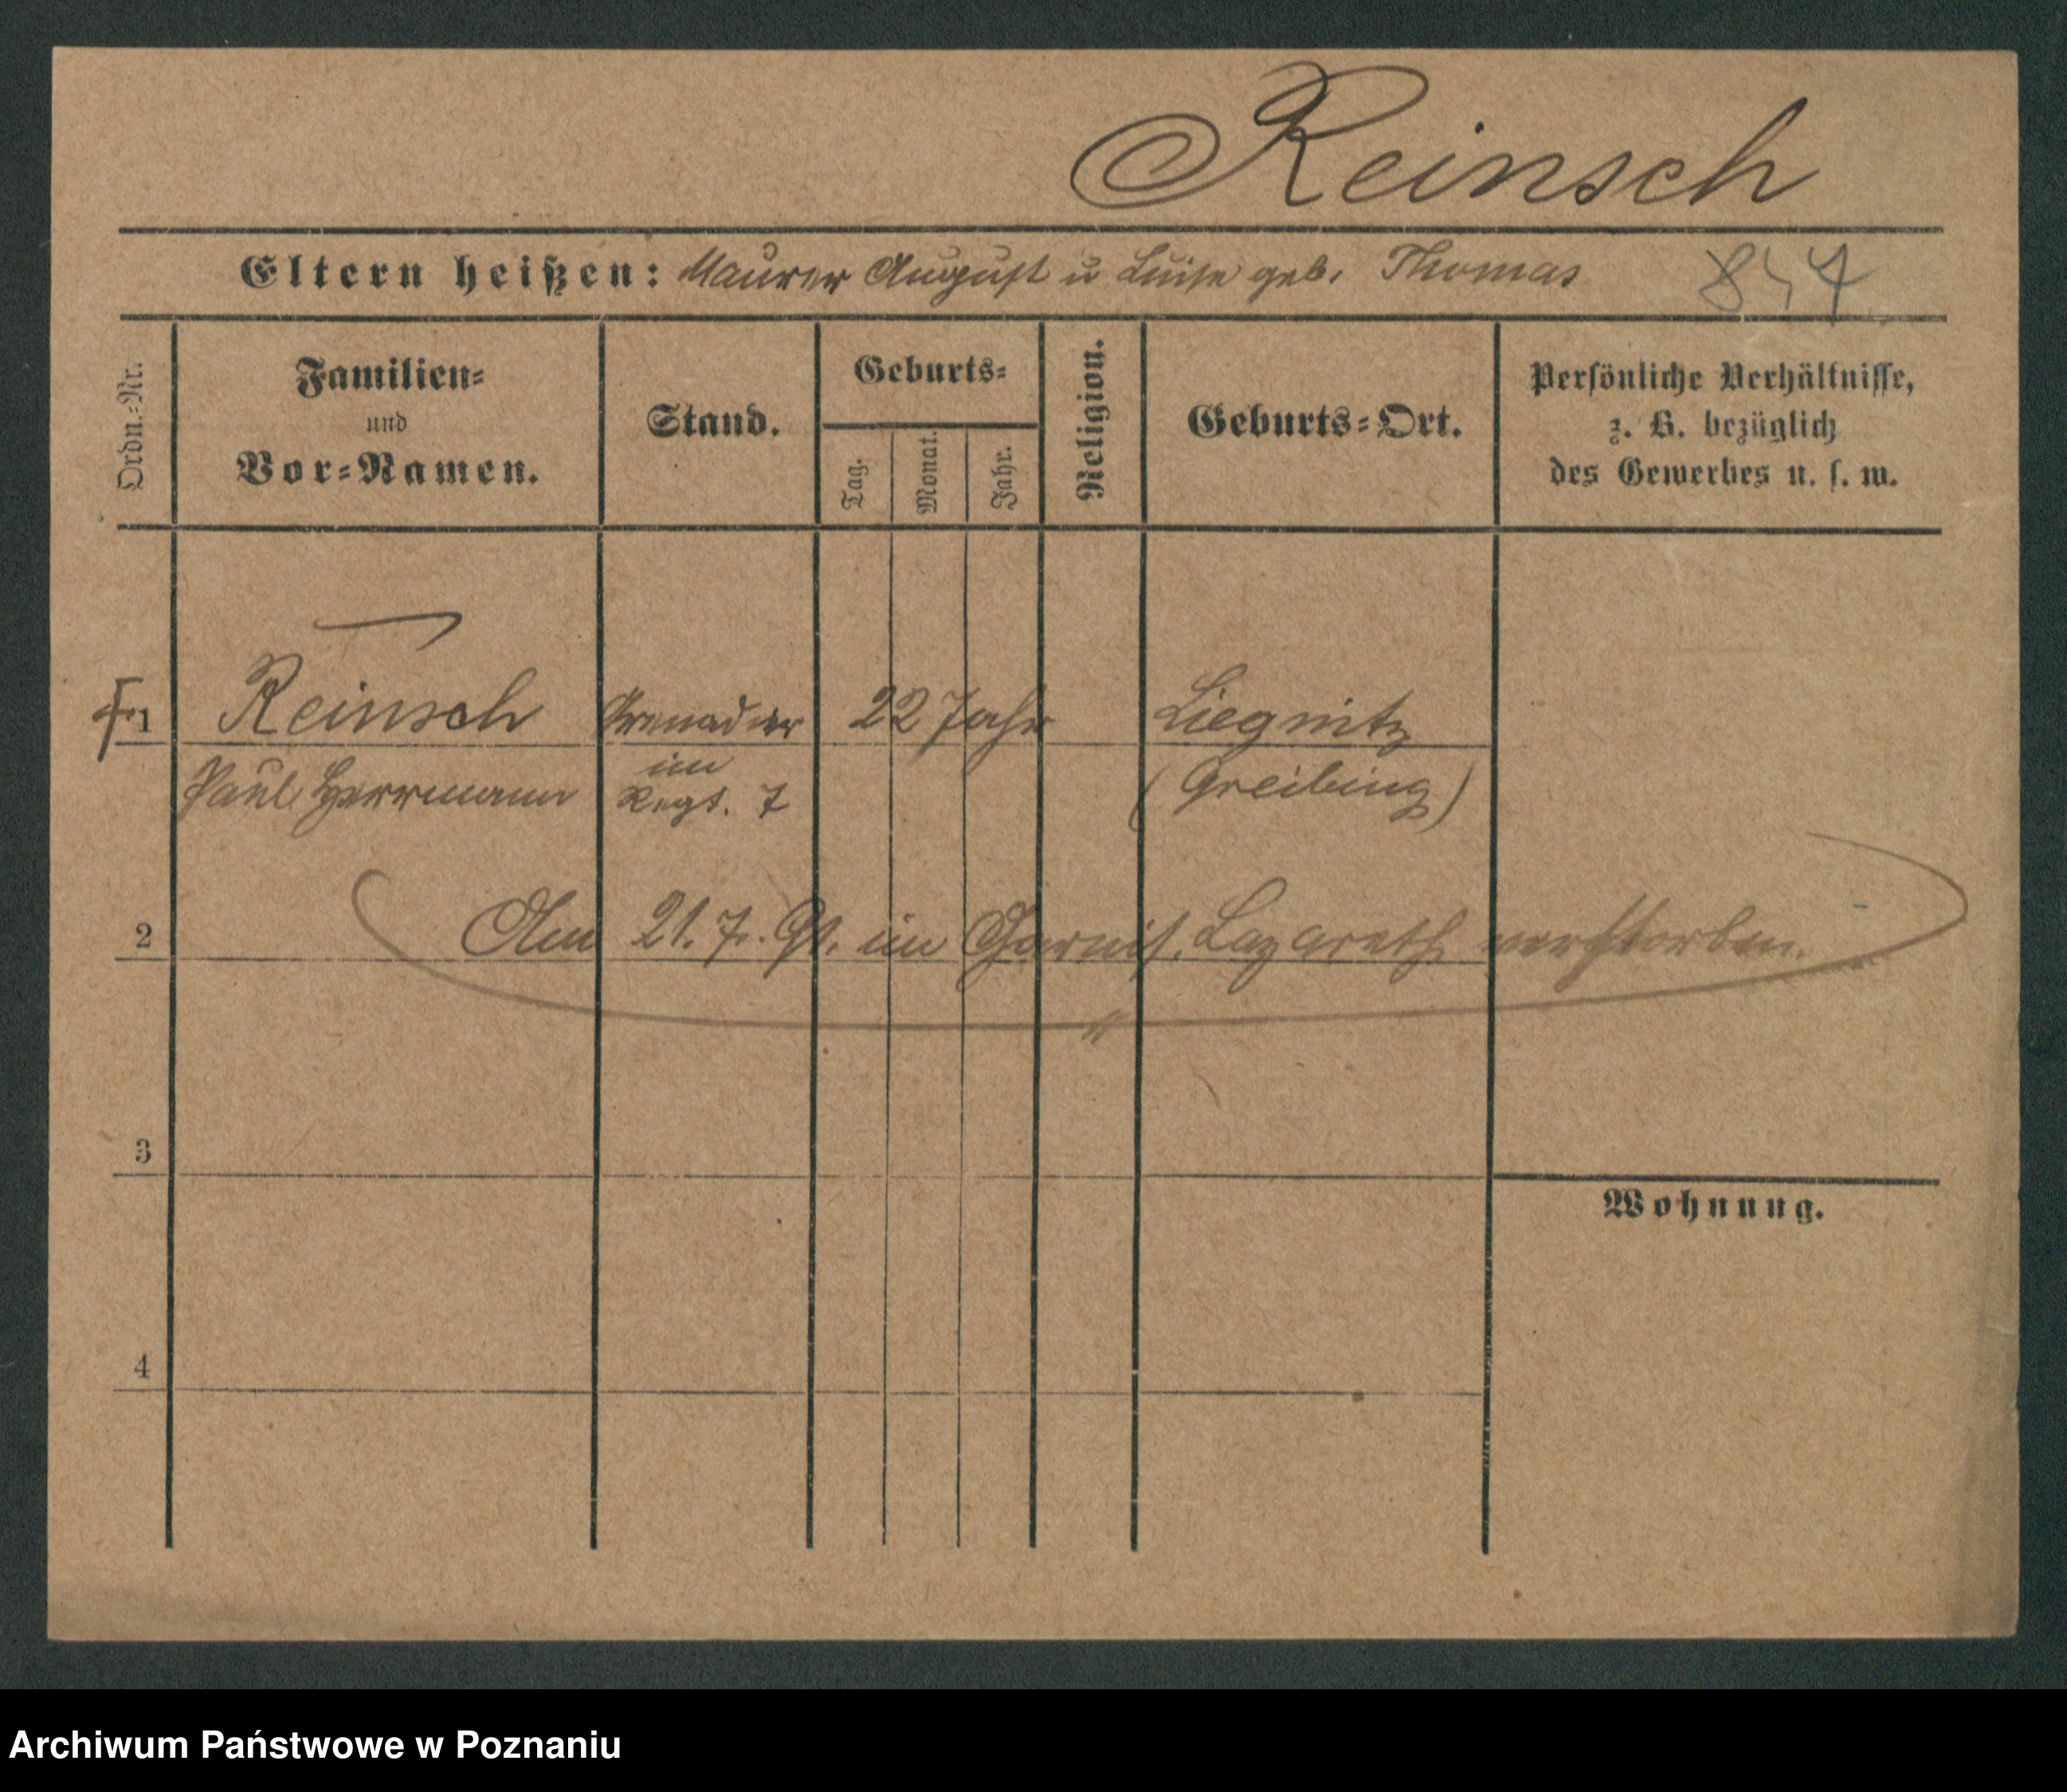 Reinsch
Eltern heißen: Maurer August u Luise geb. Thomas
Ordn.-Nr.
Familien-
und
Vor-Namen.
Stand.
Geburts-
Tag.
Monat.
Jahr.
Religion.
Geburts-Ort.
Persönliche Verhältnisse,
z. B. bezüglich
des Gewerbes u. s. w.
1 Reinsch Grenadier 22 Jahr Liegnitz
Paul Herrmann im Regt. 7 (Greibing)
2 Am 21. 7. im Garnis. Lazareth verstorben.
3
Wohnung.
4
Archiwum Państwowe w Poznaniu